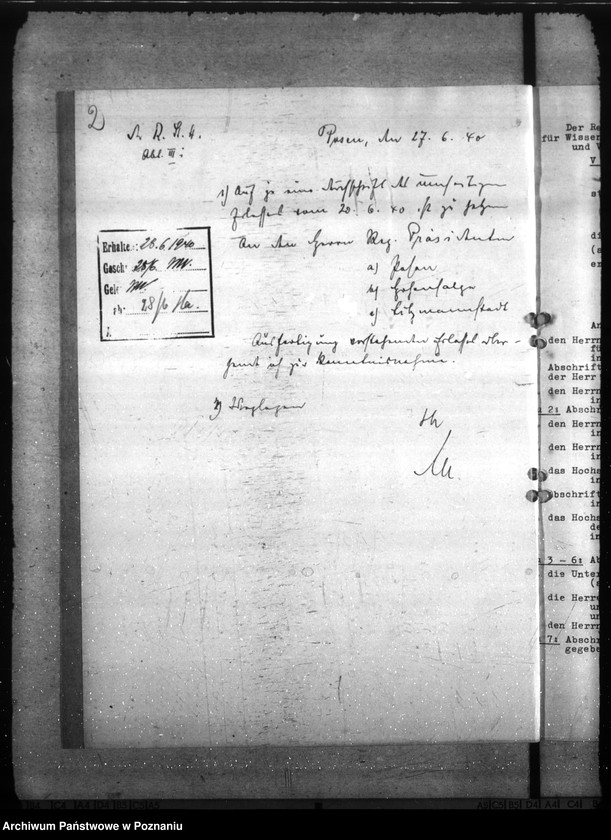 2
D. R. St. H.
Abt. III:
Posen, den 27. 6. 40
1) Auf je eine Durchschrift des umseitigen
Erlasses vom 20. 6. 40 ist zu setzen
An den Herrn Reg. Präsidenten
a) Posen
b) Hohensalza
c) Litzmannstadt
Ausfertigung vorstehenden Erlasses über-
sende ich zur Kenntnisnahme.
2) Weglegen
Erhalte: 28.6.1940
Gesch:
Gele
ab: 28/6
Der Re
für Wissen
und V
V
st
di
(a
er
An
den Herrn
fü
in
Abschrift
der Herr
den Herrn
in
2: Abschr
den Herrn
in
den Herrn
in
das Hochs
in
Abschrift
das Hochs
de
in
3 - 6: Ab
die Unter
(a
die Herre
un
un
den Herrn
7: Abschr
gegebe
Archiwum Państwowe w Poznaniu